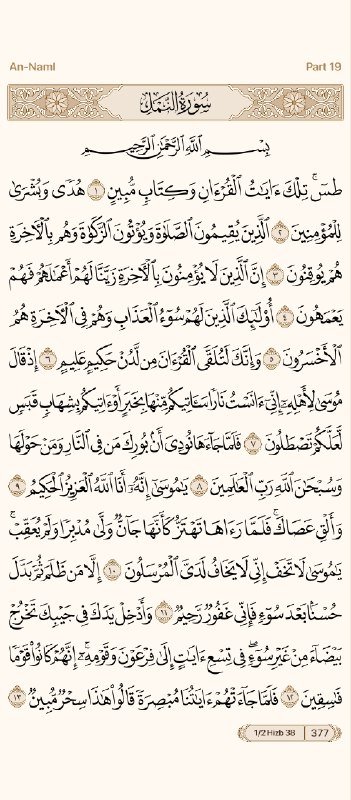 An-Naml Part 19
سُورَةُ النَّمْلِ
بِسْمِ اللَّهِ الرَّحْمَٰنِ الرَّحِيمِ
طسٓ ۚ تِلْكَ ءَايَٰتُ الْقُرْءَانِ وَكِتَابٍ مُّبِينٍ ١ هُدًى وَبُشْرَىٰ
لِلْمُؤْمِنِينَ ٢ الَّذِينَ يُقِيمُونَ الصَّلَوٰةَ وَيُؤْتُونَ الزَّكَوٰةَ وَهُم بِالْءَاخِرَةِ
هُمْ يُوقِنُونَ ٣ إِنَّ الَّذِينَ لَا يُؤْمِنُونَ بِالْءَاخِرَةِ زَيَّنَّا لَهُمْ أَعْمَٰلَهُمْ فَهُمْ
يَعْمَهُونَ ٤ أُو۟لَٰٓئِكَ الَّذِينَ لَهُمْ سُوٓءُ الْعَذَابِ وَهُمْ فِي الْءَاخِرَةِ هُمُ
الْأَخْسَرُونَ ٥ وَإِنَّكَ لَتُلَقَّى الْقُرْءَانَ مِن لَّدُنْ حَكِيمٍ عَلِيمٍ ٦ إِذْ قَالَ
مُوسَىٰ لِأَهْلِهِۦٓ إِنِّيٓ ءَانَسْتُ نَارًا سَـَٔاتِيكُم مِّنْهَا بِخَبَرٍ أَوْ ءَاتِيكُم بِشِهَابٍ قَبَسٍ
لَّعَلَّكُمْ تَصْطَلُونَ ٧ فَلَمَّا جَآءَهَا نُودِيَ أَنۢ بُورِكَ مَن فِي النَّارِ وَمَنْ حَوْلَهَا
وَسُبْحَٰنَ اللَّهِ رَبِّ الْعَٰلَمِينَ ٨ يَٰمُوسَىٰٓ إِنَّهُۥٓ أَنَا اللَّهُ الْعَزِيزُ الْحَكِيمُ ٩
وَأَلْقِ عَصَاكَ ۚ فَلَمَّا رَءَاهَا تَهْتَزُّ كَأَنَّهَا جَآنٌّ وَلَّىٰ مُدْبِرًا وَلَمْ يُعَقِّبْ ۚ
يَٰمُوسَىٰ لَا تَخَفْ إِنِّي لَا يَخَافُ لَدَيَّ الْمُرْسَلُونَ ١٠ إِلَّا مَن ظَلَمَ ثُمَّ بَدَّلَ
حُسْنًۢا بَعْدَ سُوٓءٍ فَإِنِّي غَفُورٌ رَّحِيمٌ ١١ وَأَدْخِلْ يَدَكَ فِي جَيْبِكَ تَخْرُجْ
بَيْضَآءَ مِنْ غَيْرِ سُوٓءٍ ۖ فِي تِسْعِ ءَايَٰتٍ إِلَىٰ فِرْعَوْنَ وَقَوْمِهِۦٓ ۚ إِنَّهُمْ كَانُوا۟ قَوْمًا
فَٰسِقِينَ ١٢ فَلَمَّا جَآءَتْهُمْ ءَايَٰتُنَا مُبْصِرَةً قَالُوا۟ هَٰذَا سِحْرٌ مُّبِينٌ ١٣
1/2 Hizb 38 377